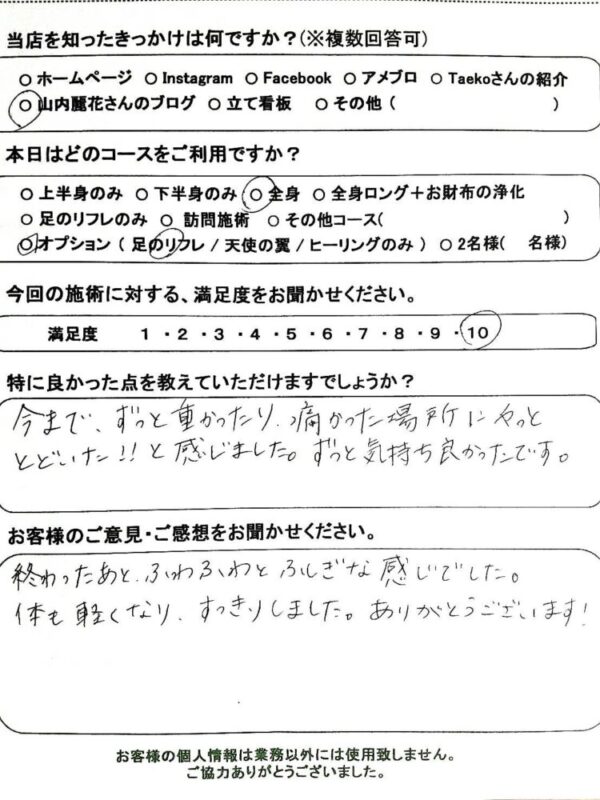 当店を知ったきっかけは何ですか？(※複数回答可)
○ ホームページ ○ Instagram ○ Facebook ○ アメブロ ○ Taekoさんの紹介
○ 山内麗花さんのブログ ○ 立て看板 ○ その他（ ）
本日はどのコースをご利用ですか？
○ 上半身のみ ○ 下半身のみ ○ 全身 ○ 全身ロング＋お財布の浄化
○ 足のリフレのみ ○ 訪問施術 ○ その他コース( )
○ オプション（ 足のリフレ / 天使の翼 / ヒーリングのみ ） ○ 2名様( 名様)
今回の施術に対する、満足度をお聞かせください。
満足度 1 ・ 2 ・ 3 ・ 4 ・ 5 ・ 6 ・ 7 ・ 8 ・ 9 ・ 10
特に良かった点を教えていただけますでしょうか？
今まで、ずっと重かったり、痛かった場所にやっと
とどいた!!と感じました。ずっと気持ち良かったです。
お客様のご意見・ご感想をお聞かせください。
終わったあと、ふわふわとふしぎな感じでした。
体も軽くなり、すっきりしました。ありがとうございます!
お客様の個人情報は業務以外には使用致しません。
ご協力ありがとうございました。